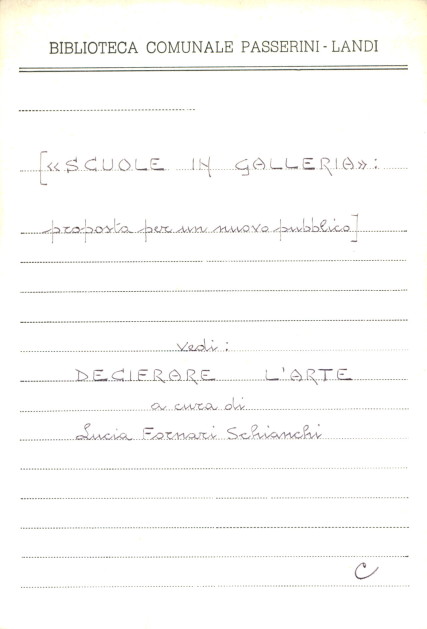 BIBLIOTECA COMUNALE PASSERINI - LANDI
[«SCUOLE IN GALLERIA»:
proposta per un nuovo pubblico]
vedi:
DECIFRARE L'ARTE
a cura di
Lucia Fornari Schianchi
C